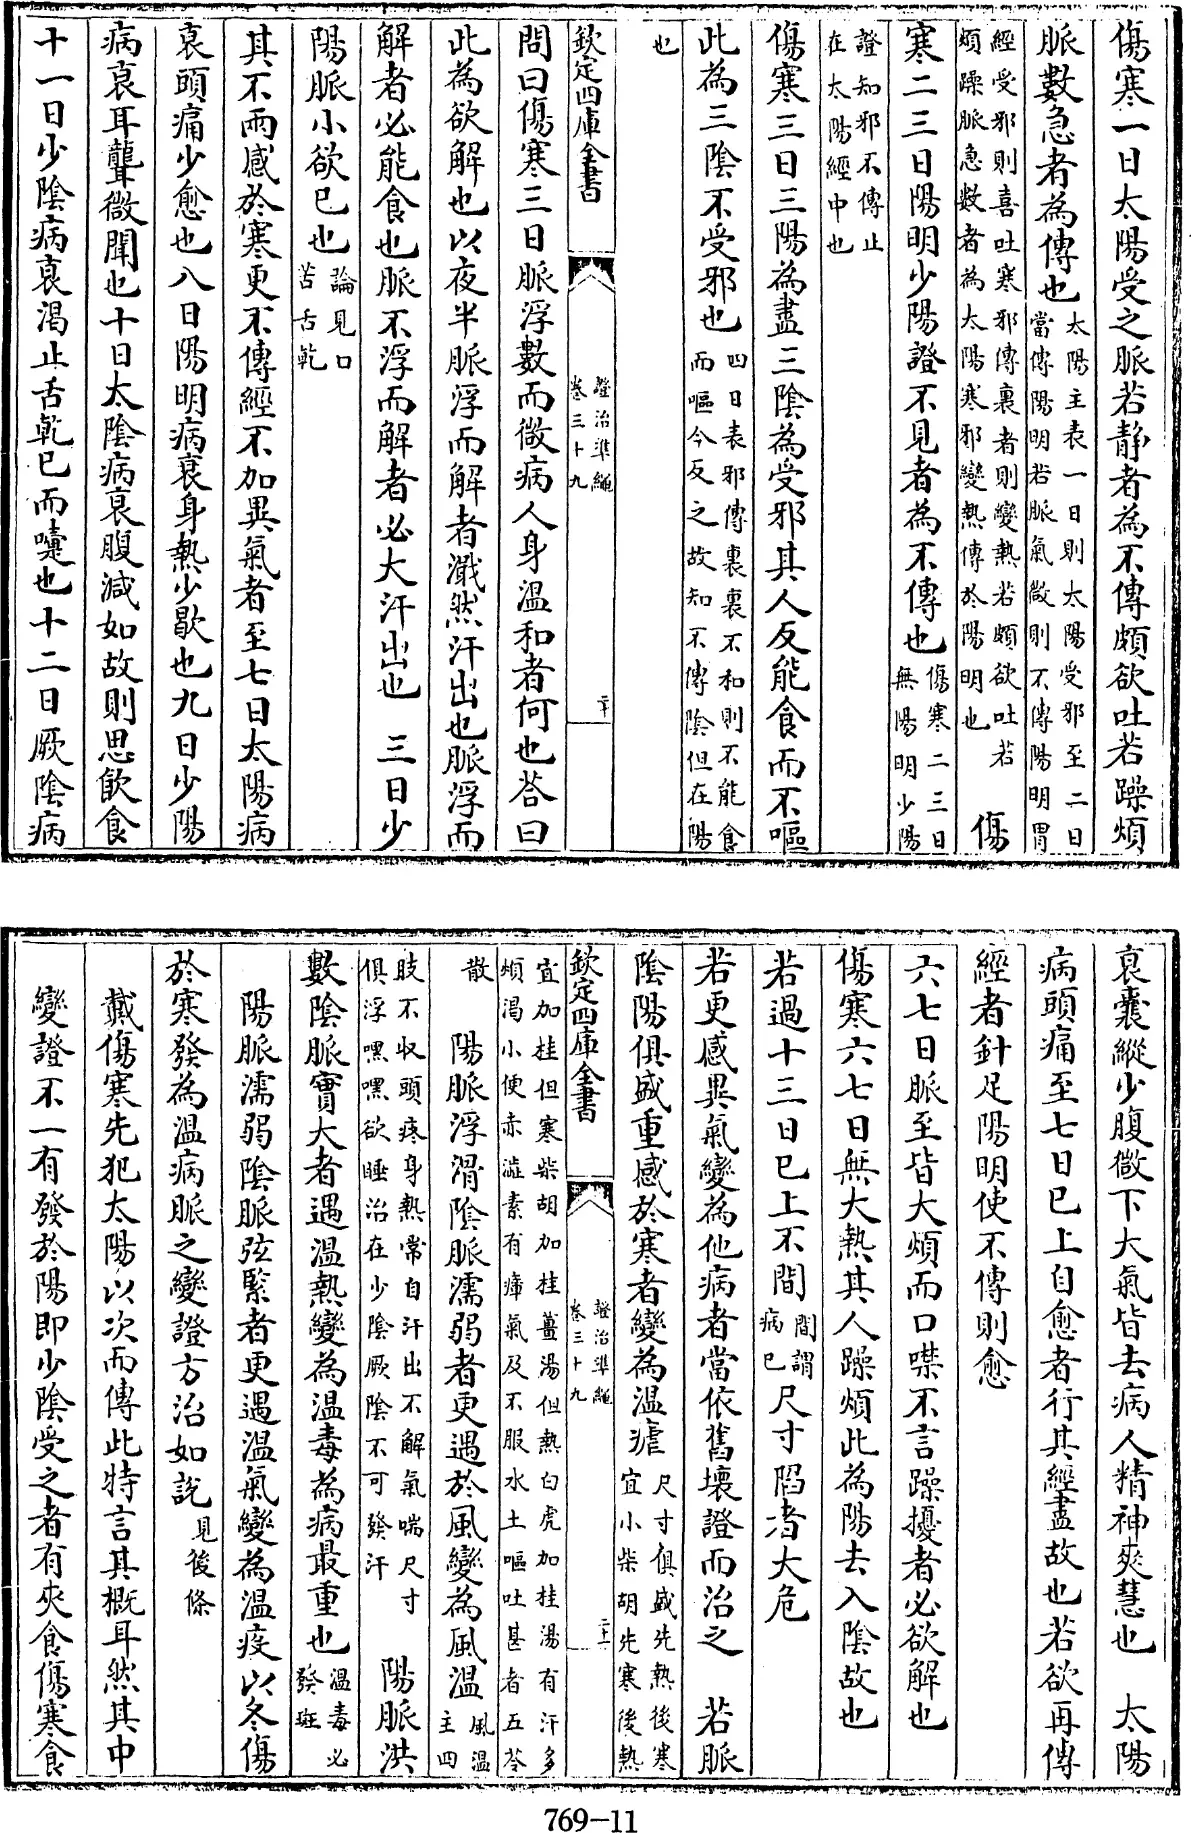 傷寒一日太陽受之脈若靜者為不傳頗欲吐若躁煩
脈數急者為傳也太陽主表一日則太陽受邪至二日
當傳陽明若脈氣微則不傳陽明胃
經受邪則喜吐寒邪傳裏者則變熱若頗欲吐若
煩躁脈急數者為太陽寒邪變熱傳於陽明也 傷
寒二三日陽明少陽證不見者為不傳也傷寒二三日
無陽明少陽
證知邪不傳止
在太陽經中也
傷寒三日三陽為盡三陰為受邪其人反能食而不嘔
此為三陰不受邪也四日表邪傳裏裏不和則不能食
而嘔今反之故知不傳陰但在陽
也
欽定四庫全書
證治準繩
卷三十九
二十
問曰傷寒三日脈浮數而微病人身溫和者何也荅曰
此為欲解也以夜半脈浮而解者濈然汗出也脈浮而
解者必能食也脈不浮而解者必大汗出也 三日少
陽脈小欲已也論見口
苦舌乾
其不兩感於寒更不傳經不加異氣者至七日太陽病
衰頭痛少愈也八日陽明病衰身熱少歇也九日少陽
病衰耳聾微聞也十日太陰病衰腹減如故則思飲食
十一日少陰病衰渴止舌乾已而嚏也十二日厥陰病
衰囊縱少腹微下大氣皆去病人精神爽慧也 太陽
病頭痛至七日已上自愈者行其經盡故也若欲再傳
經者針足陽明使不傳則愈
六七日脈至皆大煩而口噤不言躁擾者必欲解也
傷寒六七日無大熱其人躁煩此為陽去入陰故也
若過十三日已上不間間謂
病已尺寸陷者大危
若更感異氣變為他病者當依舊壞證而治之 若脈
陰陽俱盛重感於寒者變為溫瘧尺寸俱盛先熱後寒
宜小柴胡先寒後熱
欽定四庫全書
證治準繩
卷三十九
二十一
宜加桂但寒柴胡加桂薑湯但熱白虎加桂湯有汗多
煩渴小便赤澁素有瘴氣及不服水土嘔吐甚者五苓
散 陽脈浮滑陰脈濡弱者更遇於風變為風溫風溫
主四
肢不收頭疼身熱常自汗出不解氣喘尺寸
俱浮嘿嘿欲睡治在少陰厥陰不可發汗 陽脈洪
數陰脈實大者遇溫熱變為溫毒為病最重也溫毒必
發斑
陽脈濡弱陰脈弦緊者更遇溫氣變為溫疫以冬傷
於寒發為溫病脈之變證方治如說見後條
戴傷寒先犯太陽以次而傳此特言其概耳然其中
變證不一有發於陽即少陰受之者有夾食傷寒食
769-11